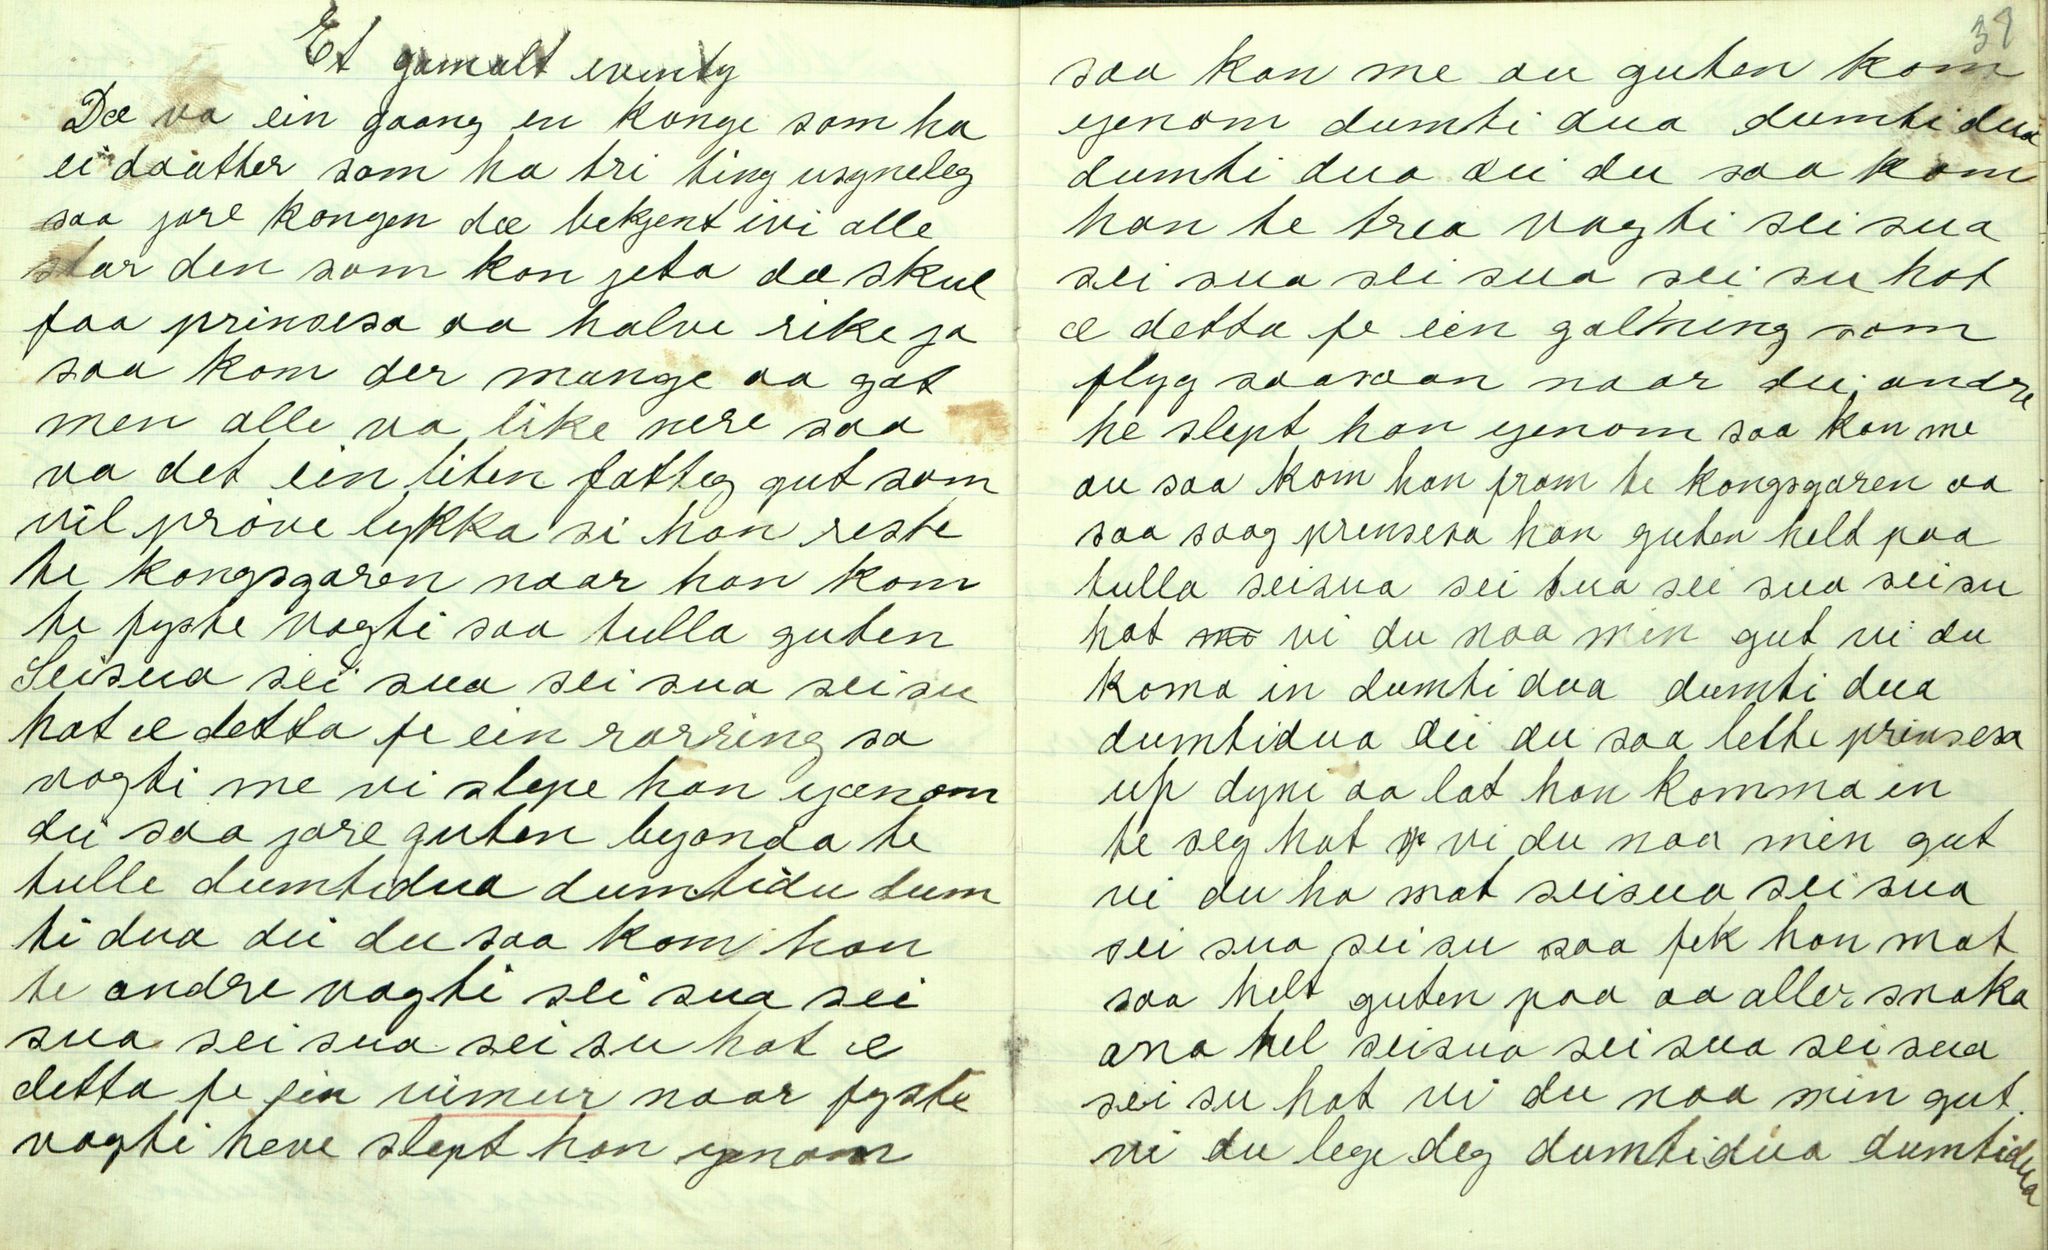 Et gamalt eventy
Dæ va ein gaang en konge som ha
ei daatter som ha tri ting usyneleg
saa jore kongen dæ bekjent ivi alle
star den som kan jeta dæ skul
faa prinsesa aa halve rike ja
saa kom der mange aa gat
men alle va like nere saa
va det ein liten fatteg gut som
vil prøve lykka si han reste
te kongsgaren naar han kom
te fyste vagti saa tulla guten
Seisua sei sua sei sua sei su
hat æ detta fe ein rarring sa
vagti me vi slepe han ejænom
du saa jore guten byonda te
tulle dumtidua dumtidu dum
ti dua dei du saa kom han
te andre vagti sei sua sei
sua sei sua sei su hat æ
detta fe ein uimur naar fyste
vagti heve slept han ejenom
38
saa kan me au guten kom
ejenom dumti dua dumti dua
dumti dua dei du saa kom
han te trea vagti sei sua
sei sua sei sua sei su hat
æ detta fe ein galning som
flyg saasoan naar dei andre
he slept han ejenom saa kan me
au saa kom han fram te kongsgaren aa
saa saag prinsesa han guten helt paa
tulla seisua sei sua sei sua sei su
hat vi du naa min gut vi du
koma in dumti dua dumti dua
dumtidua dei du saa lette prinsesa
up dyni aa lat han komma in
te seg hat vi du naa min gut
vi du ha mat seisua sei sua
sei sua sei su saa fek han mat
saa helt guten paa aa aller snaka
ana hel seisua sei sua sei sua
sei su hat vi du naa min gut
vi du lege deg dumtidua dumtidua